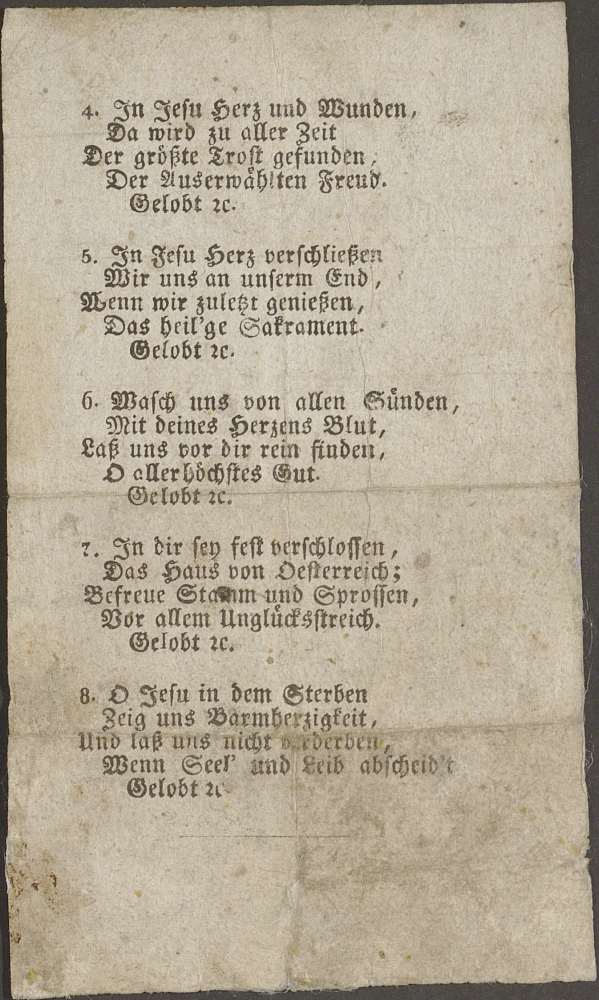 4. In Jesu Herz und Wunden,
Da wird zu aller Zeit
Der größte Trost gefunden,
Der Auserwählten Freud.
Gelobt ꝛc.
5. In Jesu Herz verschließen
Wir uns an unserm End,
Wenn wir zuletzt genießen,
Das heil'ge Sakrament.
Gelobt ꝛc.
6. Wasch uns von allen Sünden,
Mit deines Herzens Blut,
Laß uns vor dir rein finden,
O allerhöchstes Gut.
Gelobt ꝛc.
7. In dir sey fest verschlossen,
Das Haus von Oesterreich;
Befreue Stamm und Sprossen,
Vor allem Unglücksstreich.
Gelobt ꝛc.
8. O Jesu in dem Sterben
Zeig uns Barmherzigkeit,
Und laß uns nicht verderben,
Wenn Seel' und Leib abscheid't
Gelobt ꝛc.